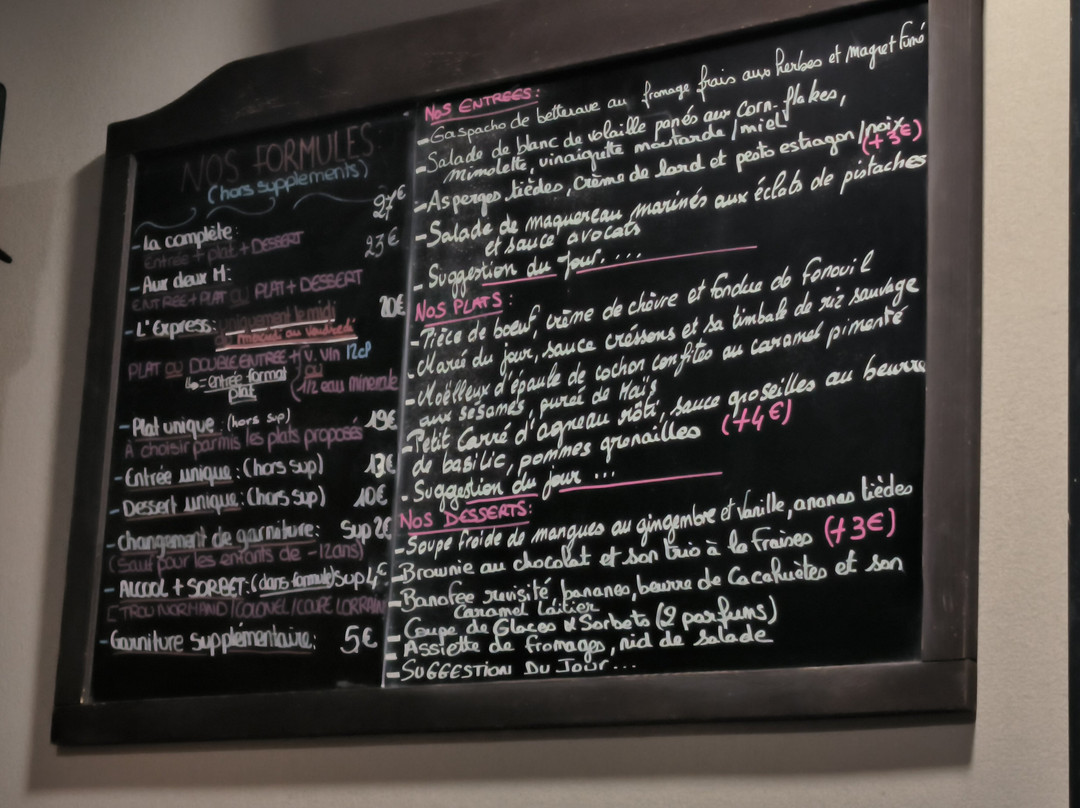 NOS FORMULES
(hors supplements)
- La complète: 27€
Entrée + plat + DESSERT
- Aux deux M: 23€
ENTREE + PLAT OU PLAT + DESSERT
- L'Express: uniquement le midi 20€
du mercredi au vendredi
PLAT OU DOUBLE ENTREE + V. VIN 12cl
= entrée format plat OU
1/2 eau minerale
- Plat unique: (hors sup) 19€
À choisir parmis les plats proposés
- Entrée unique: (hors sup) 13€
- Dessert unique: (hors sup) 10€
- Changement de garniture: sup 2€
(sauf pour les enfants de -12ans)
- ALCOOL + SORBET: (dans formule) sup 4€
(TROU NORMAND / COLONEL / COUPE LORRAIN
- Garniture supplémentaire: 5€
NOS ENTREES:
- Gaspacho de betterave au fromage frais aux herbes et magret fumé
- Salade de blanc de volaille panés aux corn-flakes,
mimolette, vinaigrette moutarde / miel
- Asperges tièdes, crème de lard et pesto estragon / noix (+3€)
- Salade de maquereau marinés aux éclats de pistaches
et sauce avocats
- Suggestion du jour....
NOS PLATS:
- Pièce de boeuf, crème de chèvre et fondue de fenouil
- Marée du jour, sauce cressons et sa timbale de riz sauvage
- Moëlleux d'épaule de cochon confites au caramel pimenté
aux sésames, purée de Maïs
- Petit Carré d'agneau rôti, sauce groseilles au beurre
de basilic, pommes grenailles (+4€)
- Suggestion du jour ...
NOS DESSERTS:
- Soupe froide de mangues au gingembre et Vanille, ananas tièdes
- Brownie au chocolat et son trio à la fraises (+3€)
- Banofee revisité, bananes, beurre de Cacahuètes et son
Caramel Laitier
- Coupe de Glaces & Sorbets (2 parfums)
- Assiette de fromages, nid de salade
- SUGGESTION DU JOUR...